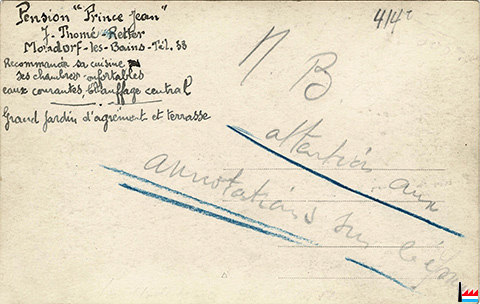 Pension "Prince Jean"
J. Thomé Retter
Mondorf-les-Bains-Tél. 38
Recommande sa cuisine
ses chambres confortables
eaux courantes, chauffage central
Grand Jardin d'agrément et terrasse
414
N. B.
attention aux
annotations sur